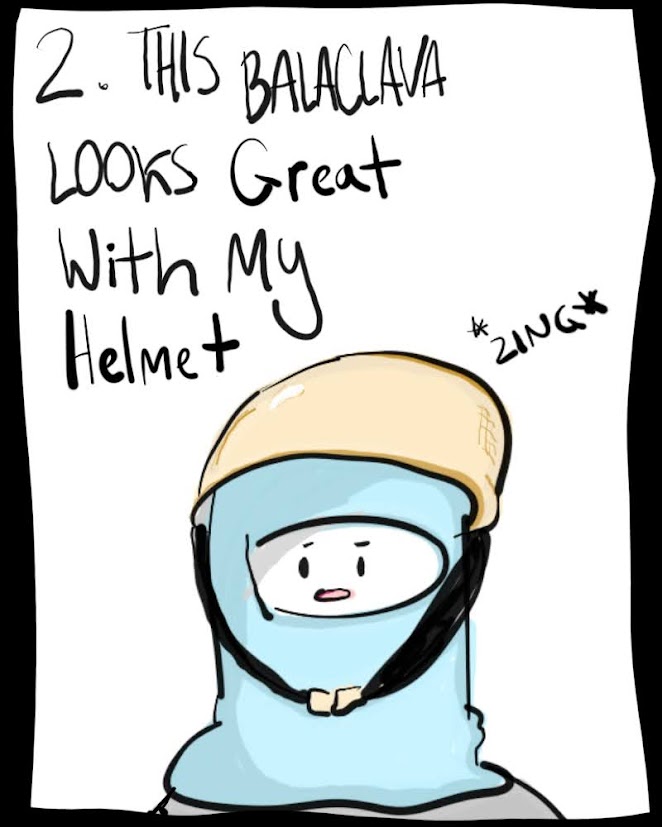 2. THIS BALACLAVA
LOOKS Great
With My
Helmet
*ZING*